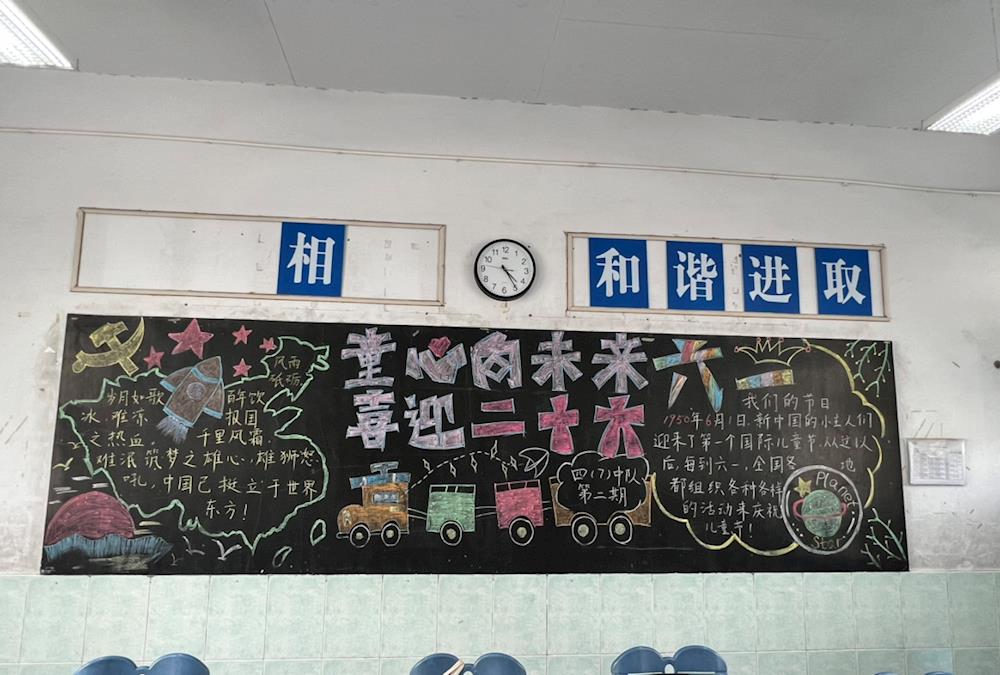 相
和谐进取
童心向未来
喜迎二十大
六一
风雨
砥砺,
岁月如歌 百年饮
冰 难冻 报国
之热血 千里风霜,
难泯筑梦之雄心,雄狮怒
吼,中国已挺立于世界
东方!
四(7)中队
第二期
我们的节日
1950年6月1日,新中国的小主人们
迎来了第一个国际儿童节,从这以
后,每到六一,全国各 地
都组织各种各样
的活动来庆祝
儿童节!
Planet
Star
12
11
1
10
2
9
3
8
4
7
5
6